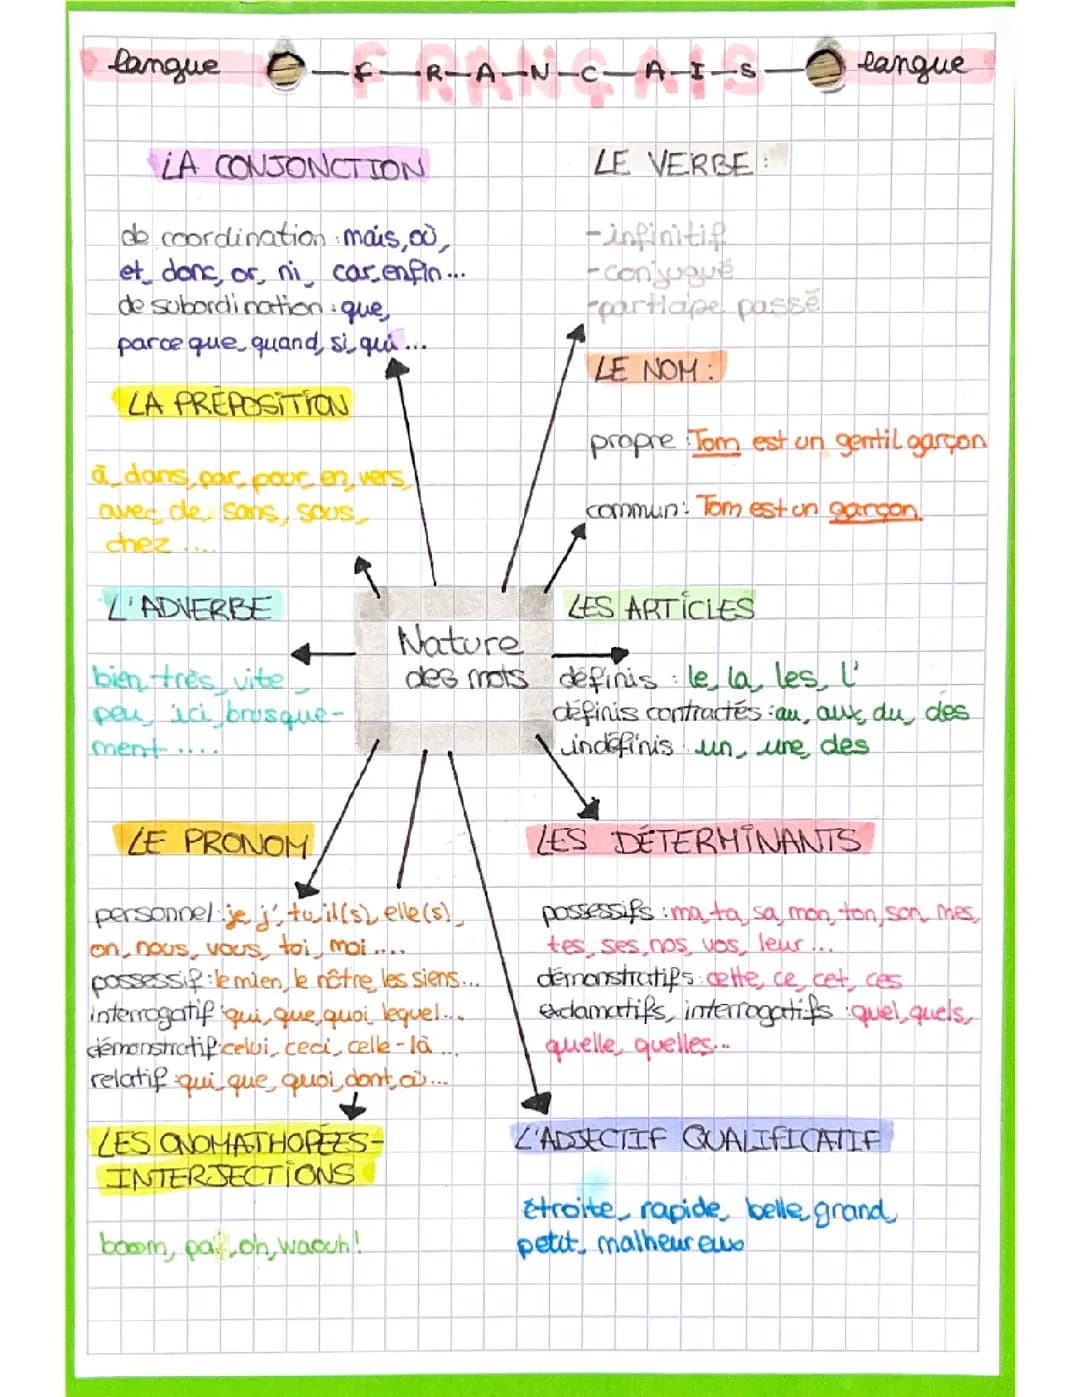 langue F-R-A-N-C-A-I-S langue
FRANÇAIS
LA CONJONCTION
de coordination : mais, où,
et, donc, or, ni, car, enfin ...
de subordination : que,
parce que, quand, si, qui ...
LE VERBE :
- infinitif
- conjugué
- participe passé
LE NOM :
propre : Tom est un gentil garçon
commun : Tom est un garçon
LA PRÉPOSITION
à, dans, par, pour, en, vers,
avec, de, sans, sous,
chez ....
L'ADVERBE
bien, très, vite,
peu, ici, brusque-
ment ....
Nature
des mots
LES ARTICLES
définis : le, la, les, l'
définis contractés : au, aux, du, des
indéfinis : un, une, des
LE PRONOM
personnel : je, j', tu, il(s), elle(s),
on, nous, vous, toi, moi ....
possessif : le mien, le nôtre, les siens ...
interrogatif : qui, que, quoi, lequel ...
démonstratif : celui, ceci, celle-là ...
relatif : qui, que, quoi, dont, où ...
LES DÉTERMINANTS
possessifs : ma, ta, sa, mon, ton, son, mes,
tes, ses, nos, vos, leur ...
démonstratifs : cette, ce, cet, ces
exclamatifs, interrogatifs : quel, quels,
quelle, quelles ...
LES ONOMATHOPÉES-
INTERJECTIONS
boom, paf, oh, waouh !
L'ADJECTIF QUALIFICATIF
étroite, rapide, belle, grand,
petit, malheureux